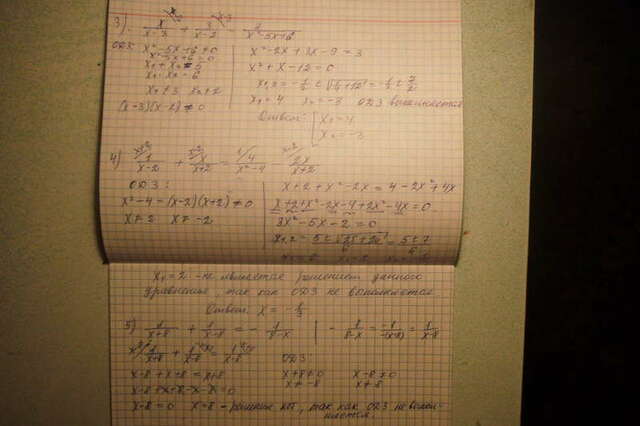 3). x/(x-3) + 3/(x-2) = 3/(x²-5x+6)
ОДЗ: x²-5x+6≠0
x²-5x+6=0
x₁+x₂=5
x₁·x₂=6
x₁≠3 x₂≠2
(x-3)(x-2)≠0
x²-2x+3x-9=3
x²+x-12=0
x₁,₂=-1/2±√(1/4+12)=-1/2±7/2
x₁=4 x₂=-3 ОДЗ выполняется
Ответ: x₁=4
x₂=-3
4) 1/(x-2) + x/(x+2) = 4/(x²-4) - 2x/(x+2)
ОДЗ:
x²-4=(x-2)(x+2)≠0
x≠2 x≠-2
x+2+x²-2x=4-2x²+4x
x+2+x²-2x-4+2x²-4x=0
3x²-5x-2=0
x₁=2 - не является решением данного
уравнения, так как ОДЗ не выполняется
Ответ: x=-1/3
5) 1/(x+8) + 1/(x-8) = - 1/(8-x)
- 1/(8-x) = -1/-(x-8) = 1/(x-8)
1/(x+8) + 1/(x-8) = 1/(x-8)
ОДЗ:
x-8+x+8=x+8
x+8≠0 x-8≠0
x≠-8 x≠8
x-8+x+8-x-8=0
x-8=0 x=8 - решения нет, так как ОДЗ не выпол-
няется.